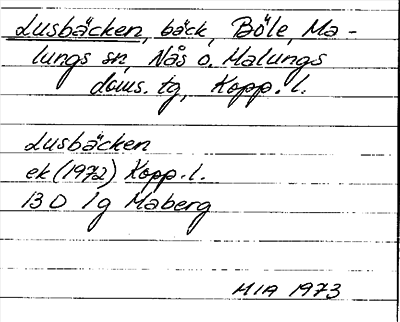 Lusbäcken, bäck, Böle, Ma-
lungs sn, Nås o. Malungs
doms. tg, Kopp. l.
Lusbäcken
ek (1972) Kopp. l.
13 D 1g Maberg
MIA 1973